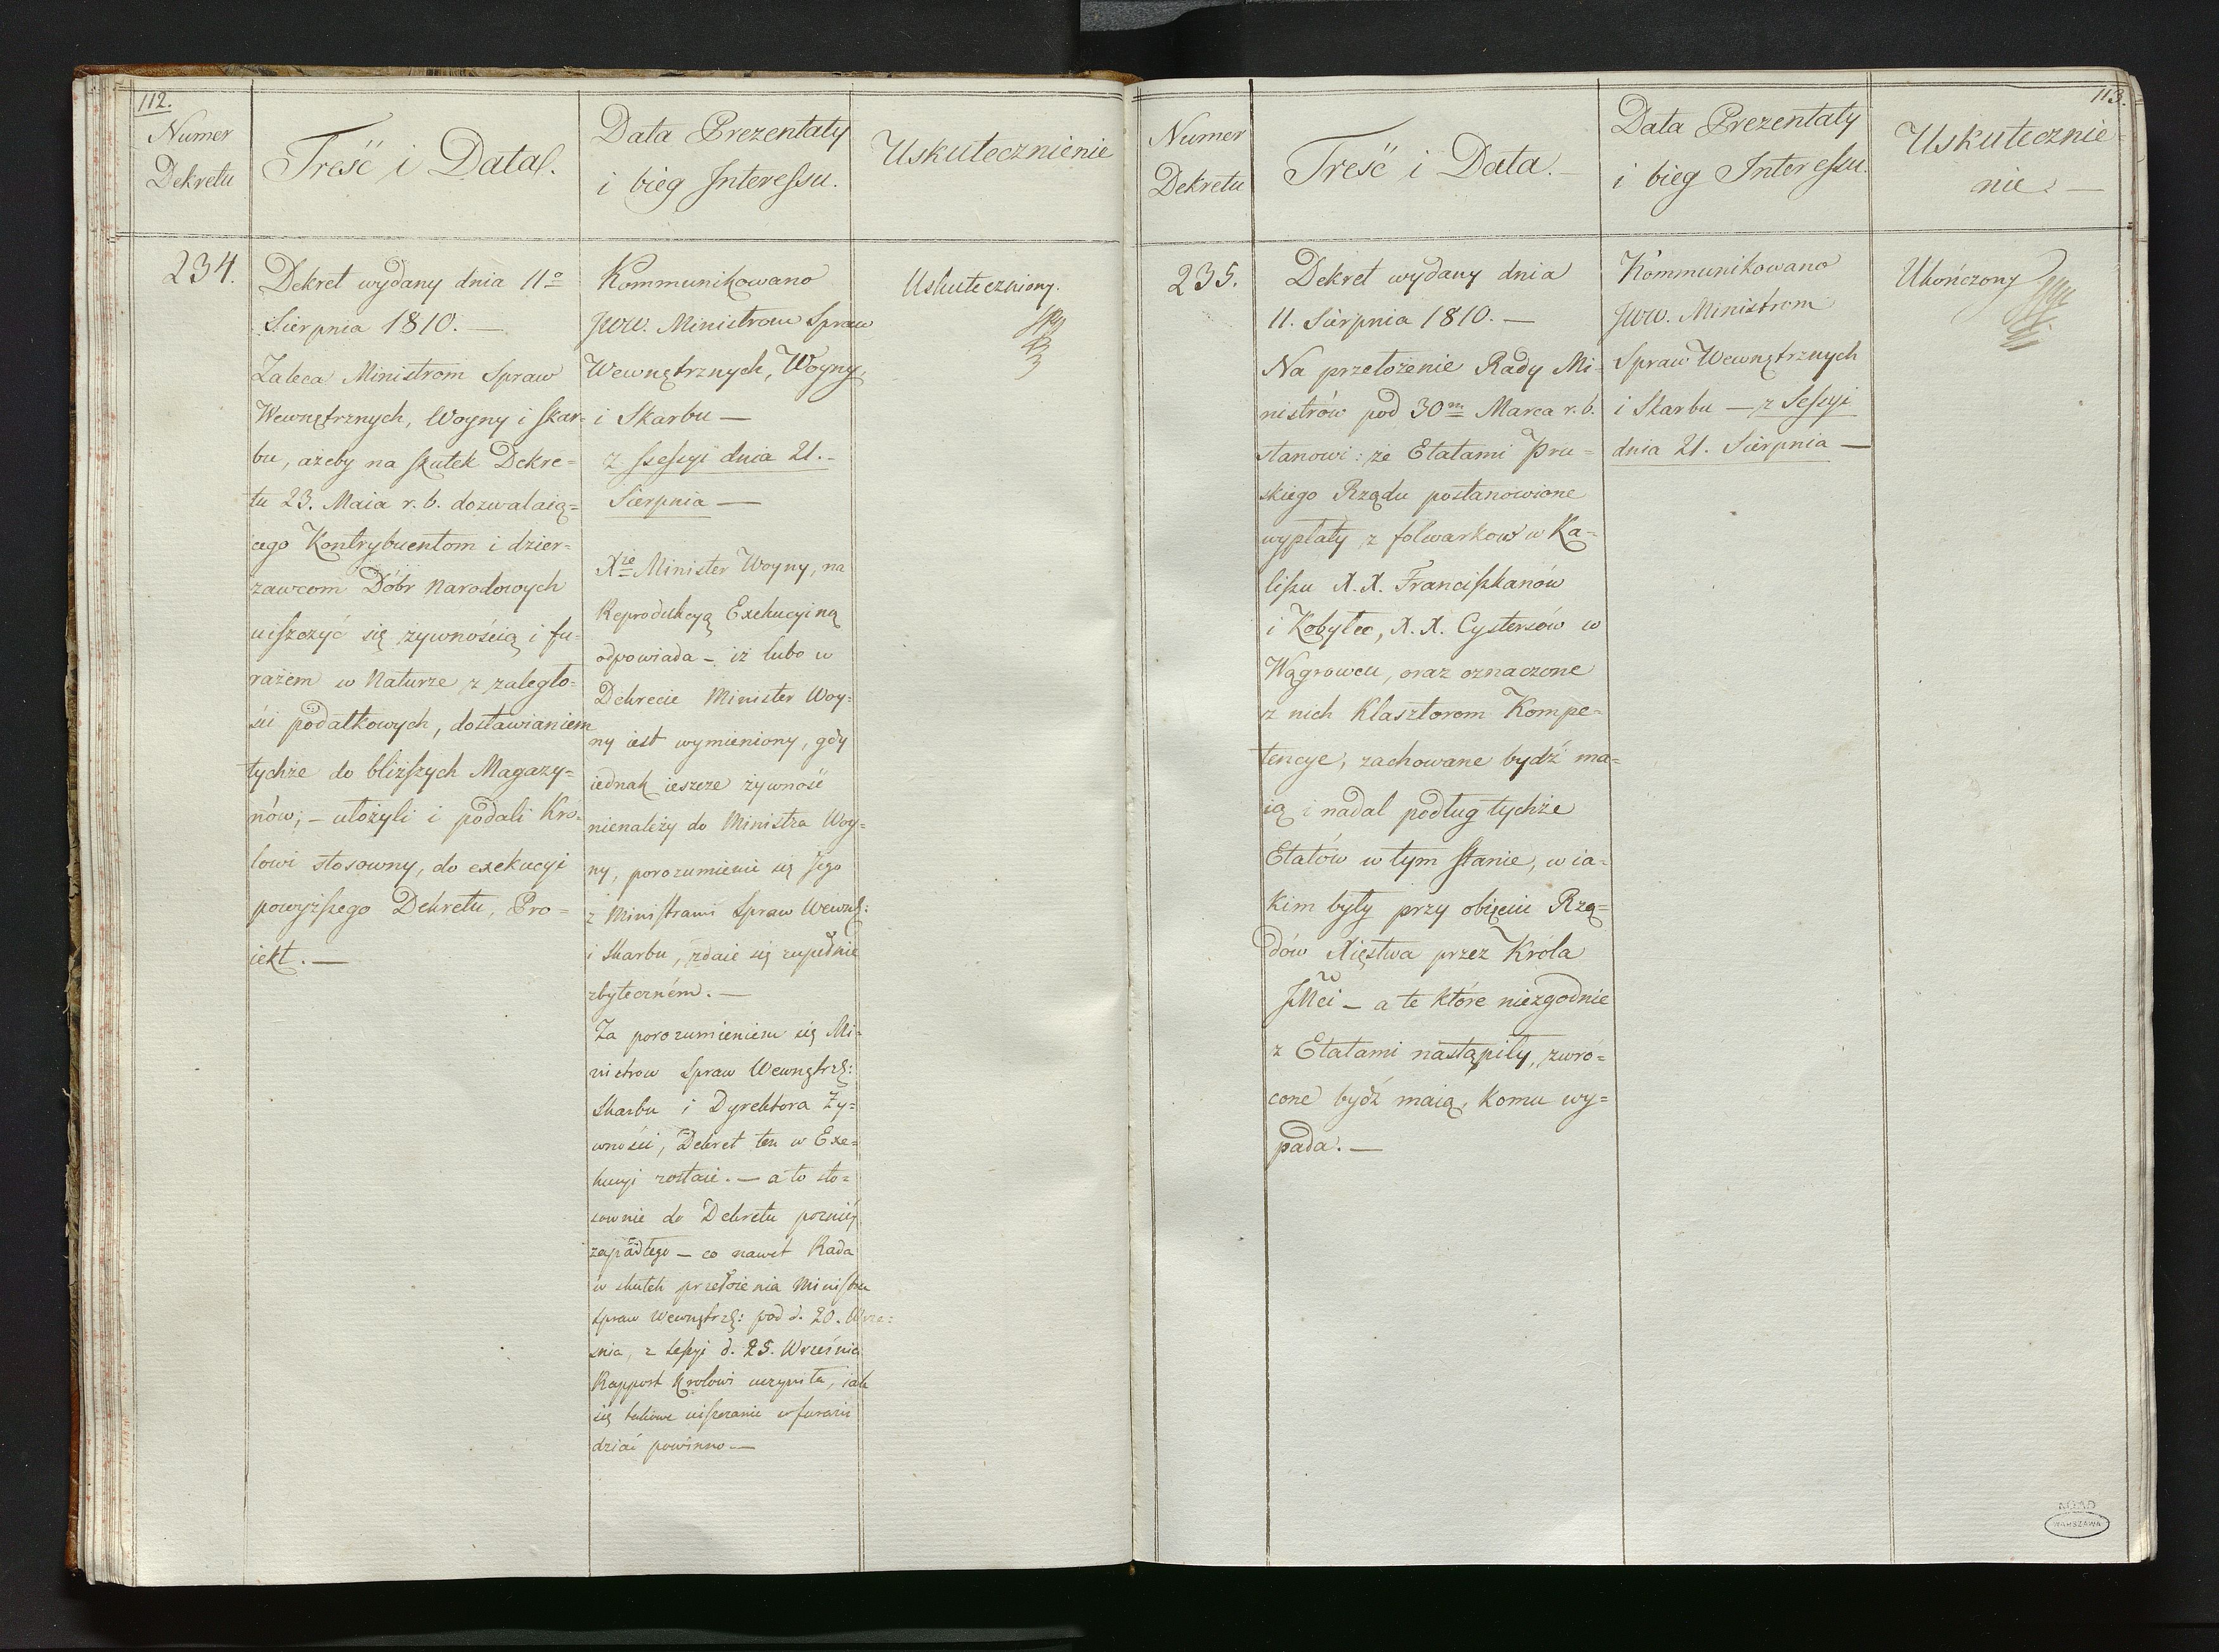 112.
Numer
Dekretu
Treść i Data.
Data Prezentaty
i bieg Interessu.
Uskutecznienie
234.
Dekret wydany dnia 11º
Sierpnia 1810. —
Zaleca Ministrom Spraw
Wewnętrznych, Woyny i Skar=
bu, ażeby na skutek Dekre=
tu 23. Maia r. b. dozwalaią=
cego Kontrybuentom i dzier=
zawcom Dóbr Narodowych
uiszczyć się żywnością i fu=
rażem w Naturze z zaległo=
ści podatkowych, dostawianiem
tychże do bliższych Magazy=
nów; — ułożyli i podali Kró=
lowi stosowny, do exekucyi
powyższego Dekretu, Pro=
iekt. —
Kommunikowano
JWW. Ministrom Spraw
Wewnętrznych, Woyny,
i Skarbu —
z Szessyi dnia 21. -
Sierpnia —
Xże Minister Woyny, na
Reprodukcyą Exekucyiną
odpowiada — iż lubo w
Dekrecie Minister Woy=
ny iest wymieniony, gdy
iednak ieszcze żywność
nienależy do Ministra Woy=
ny, porozumienie się Jego
z Ministrami Spraw Wewnę:
i Skarbu, zdaie się zupełnie
zbyteczném. —
Za porozumieniem się Mi=
nistrow Spraw Wewnętrzę:
Skarbu i Dyrektora Ży=
wności, Dekret ten w Exe=
kucyi zostaie. — a to sto=
sownie do Dekretu pozniéy
zapadłego — co nawet Rada
w skutek przełożenia Ministra
Spraw Wewnętrzę: pod d. 20. Wrze=
śnia, z Sessyi d. 25. Września
Rapport Krolowi uczyniła, iak
się takowe uiszczanie w furażu
dziać powinno —
Uskuteczniony.
113.
Numer
Dekretu
Treść i Data. —
Data Prezentaty
i bieg Interessu.
Uskutecznie=
nie. —
235.
Dekret wydany dnia
11. Sierpnia 1810. —
Na przełożenie Rady Mi=
nistrów pod 30m Marca r. b.
stanowi: że Etatami Pru=
skiego Rządu postanowione
wypłaty z folwarkow w Ka=
liszu X. X. Franciszkanów
i Kobylec, X. X. Cystersów w
Wągrowcu, oraz oznaczone
z nich Klasztorom Kompe=
tencye, zachowane bydź ma=
ią i nadal podług tychże
Etatów w tym stanie, w ia=
kim były przy obięciu Rzą=
dów Xięstwa przez Króla
JMci — a te które niezgodnie
z Etatami nastąpiły, zwró=
cone bydź maią, komu wy=
pada. —
Kommunikowano
JWW. Ministrom
Spraw Wewnętrznych
i Skarbu — z Sessyi
dnia 21. Sierpnia —
Ukończony
AGAD
WARSZAWA